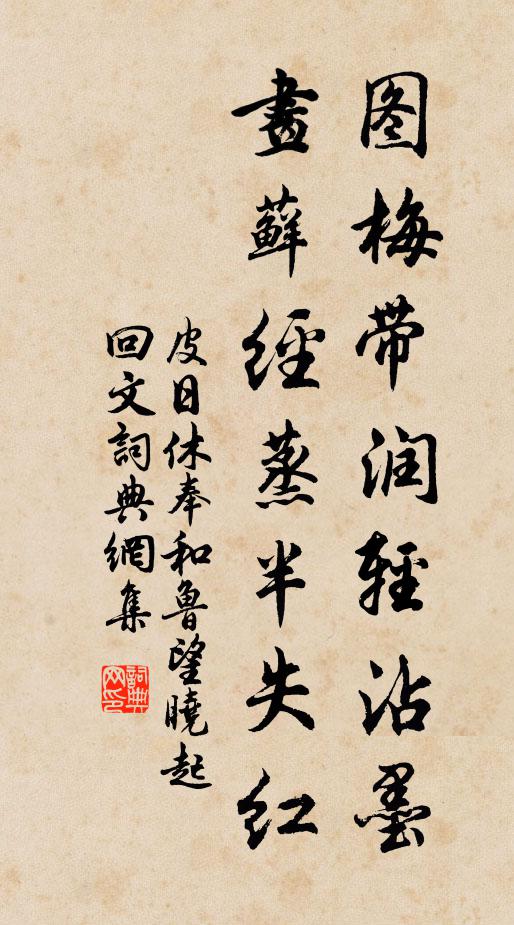 图梅带润轻沾墨
畫蘚經蒸半失红
皮日休奉和魯望曉起
回文詞典網集
詞典网印